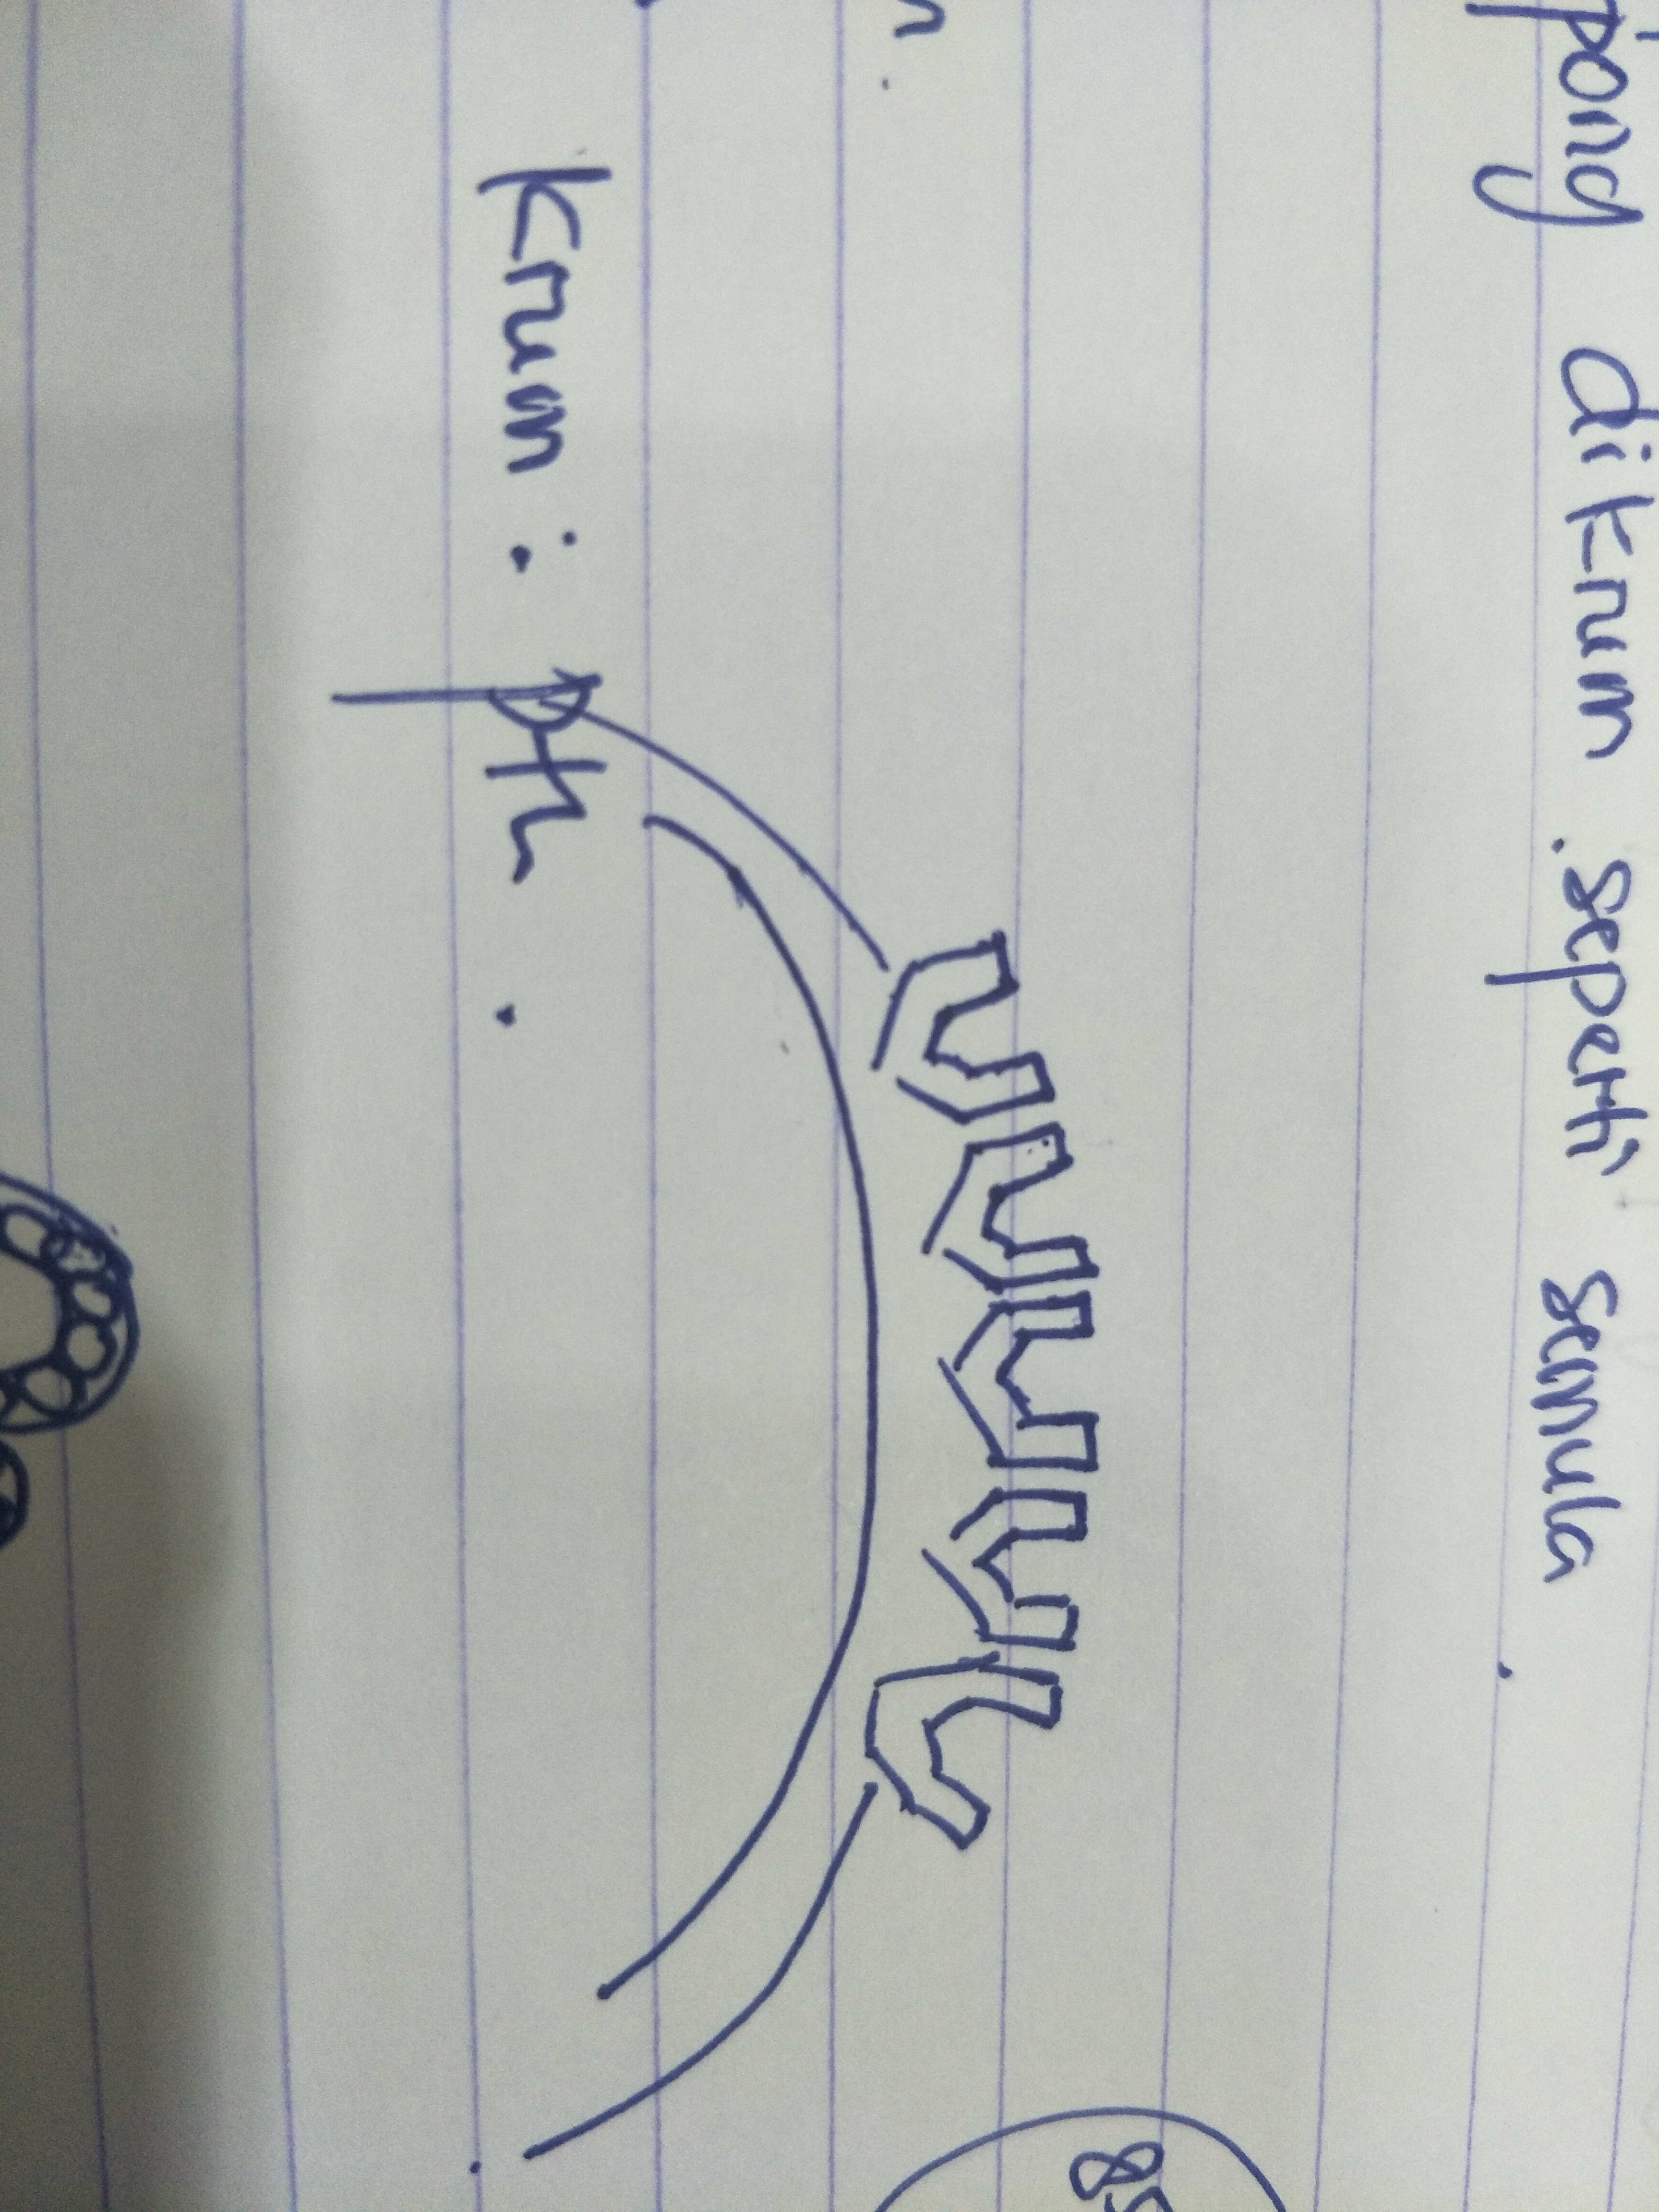 pong dikrum . seperti semula .
n .
Krum : pth .
85